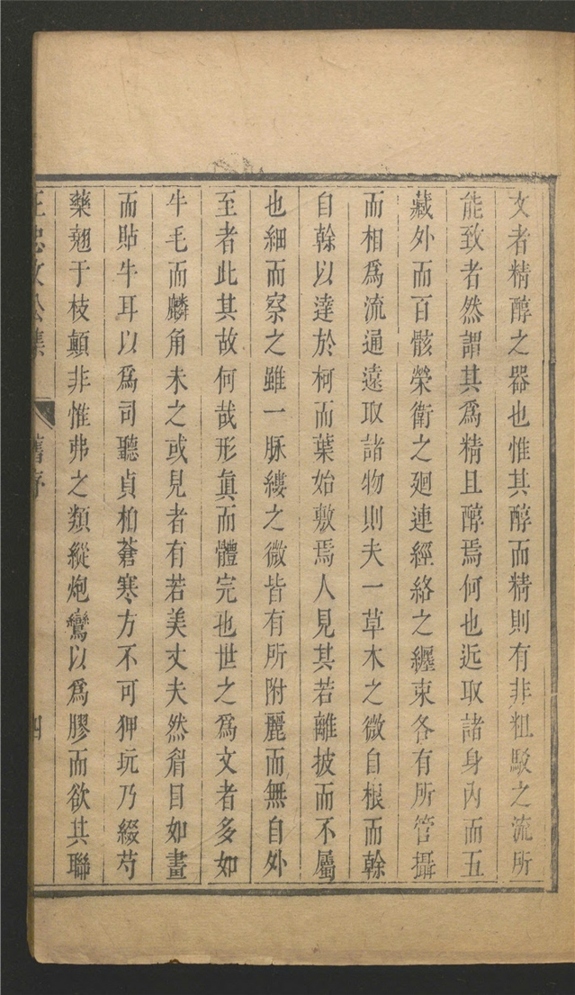 文者精醇之器也惟其醇而精則有非粗駁之流所
能致者然謂其爲精且醇焉何也近取諸身内而五
藏外而百骸榮衛之廻連經絡之纏束各有所管攝
而相爲流通遠取諸物則夫一草木之微自根而榦
自榦以達於柯而葉始敷焉人見其若離披而不屬
也細而察之雖一脉縷之微皆有所附麗而無自外
至者此其故何哉形眞而體完也世之爲文者多如
牛毛而麟角未之或見者有若美丈夫然眉目如畫
而貼牛耳以爲司聽貞柏蒼寒方不可狎玩乃綴芍
藥翹于枝顛非惟弗之類縱炮鸞以爲膠而欲其聯
王忠文公集
舊序
四